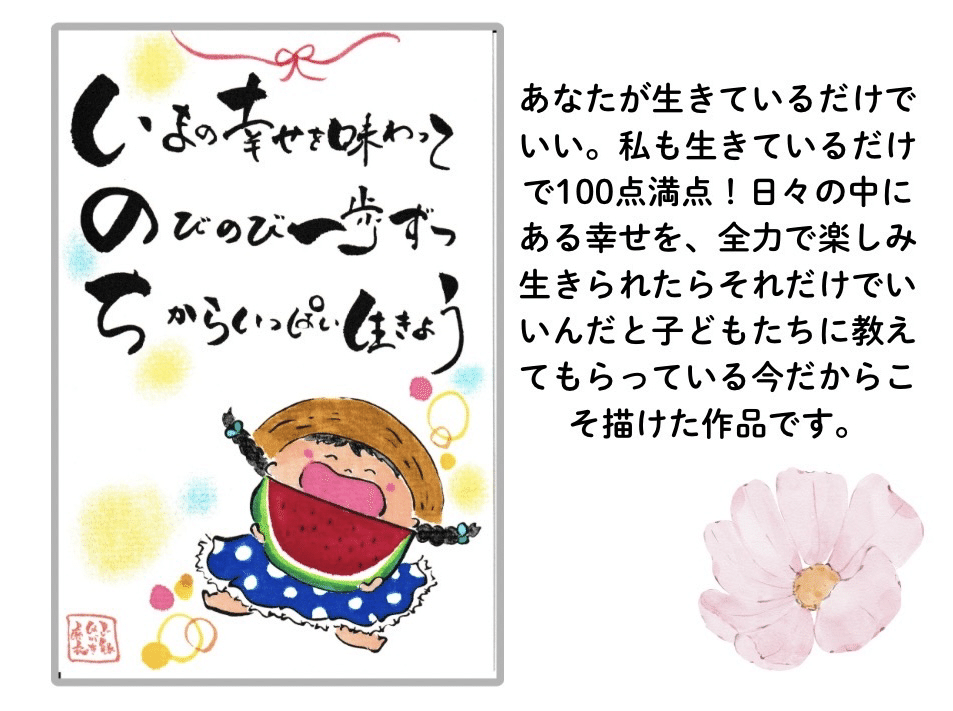 いまの幸せを味わって
のびのび一歩ずつ
ちからいっぱい生きよう
あなたが生きているだけで
いい。私も生きているだけ
で100点満点！日々の中に
ある幸せを、全力で楽しみ
生きられたらそれだけでい
いんだと子どもたちに教え
てもらっている今だからこ
そ描けた作品です。